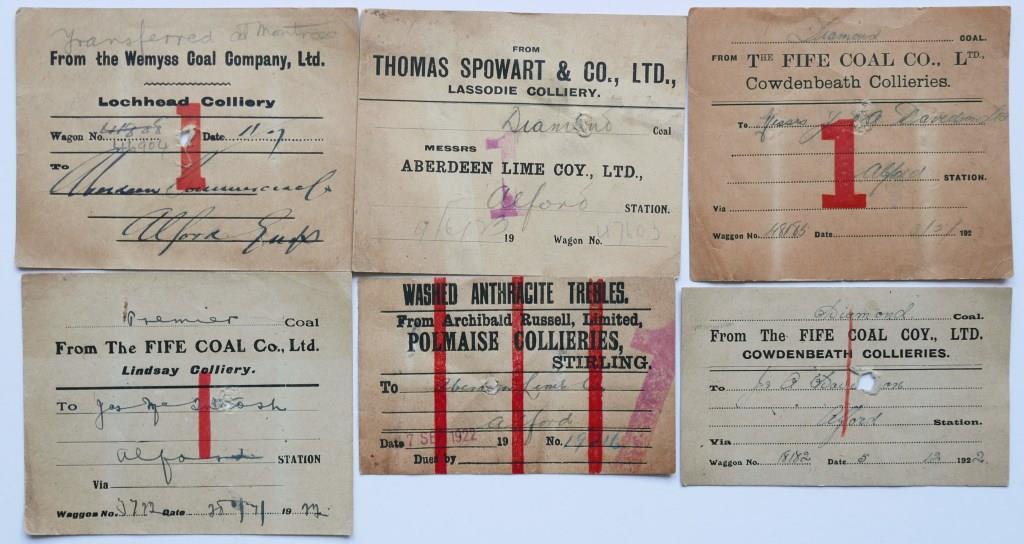 Transferred at Montrose
From the Wemyss Coal Company, Ltd.
Lochhead Colliery
Wagon No. 46904 Date 11-7
To Aberdeen Commercial Co
Alford
1
FROM
THOMAS SPOWART & CO., LTD.,
LASSODIE COLLIERY.
Diamond Coal
MESSRS
ABERDEEN LIME COY., LTD.,
Alford STATION.
9/6/23 19 Wagon No.
1
Diamond COAL.
FROM THE FIFE COAL CO., LTD.,
Cowdenbeath Collieries.
To Messrs Davidson
Alford STATION.
Via
Waggon No. Date 192
1
Premier Coal
From The FIFE COAL Co., Ltd.
Lindsay Colliery.
To Jas McIntosh
Alford STATION
Via
Waggon No. Date 25/7/ 1922
WASHED ANTHRACITE TREBLES.
From Archibald Russell, Limited,
POLMAISE COLLIERIES,
STIRLING.
To Aberdeen Lime Co
Alford
Date 7 SEP 1922 19 No.
Dues by
1
Diamond Coal.
From The FIFE COAL COY., LTD.
COWDENBEATH COLLIERIES.
To Davidson
Alford Station.
Via
Waggon No. 18182 Date 5 12 1922.